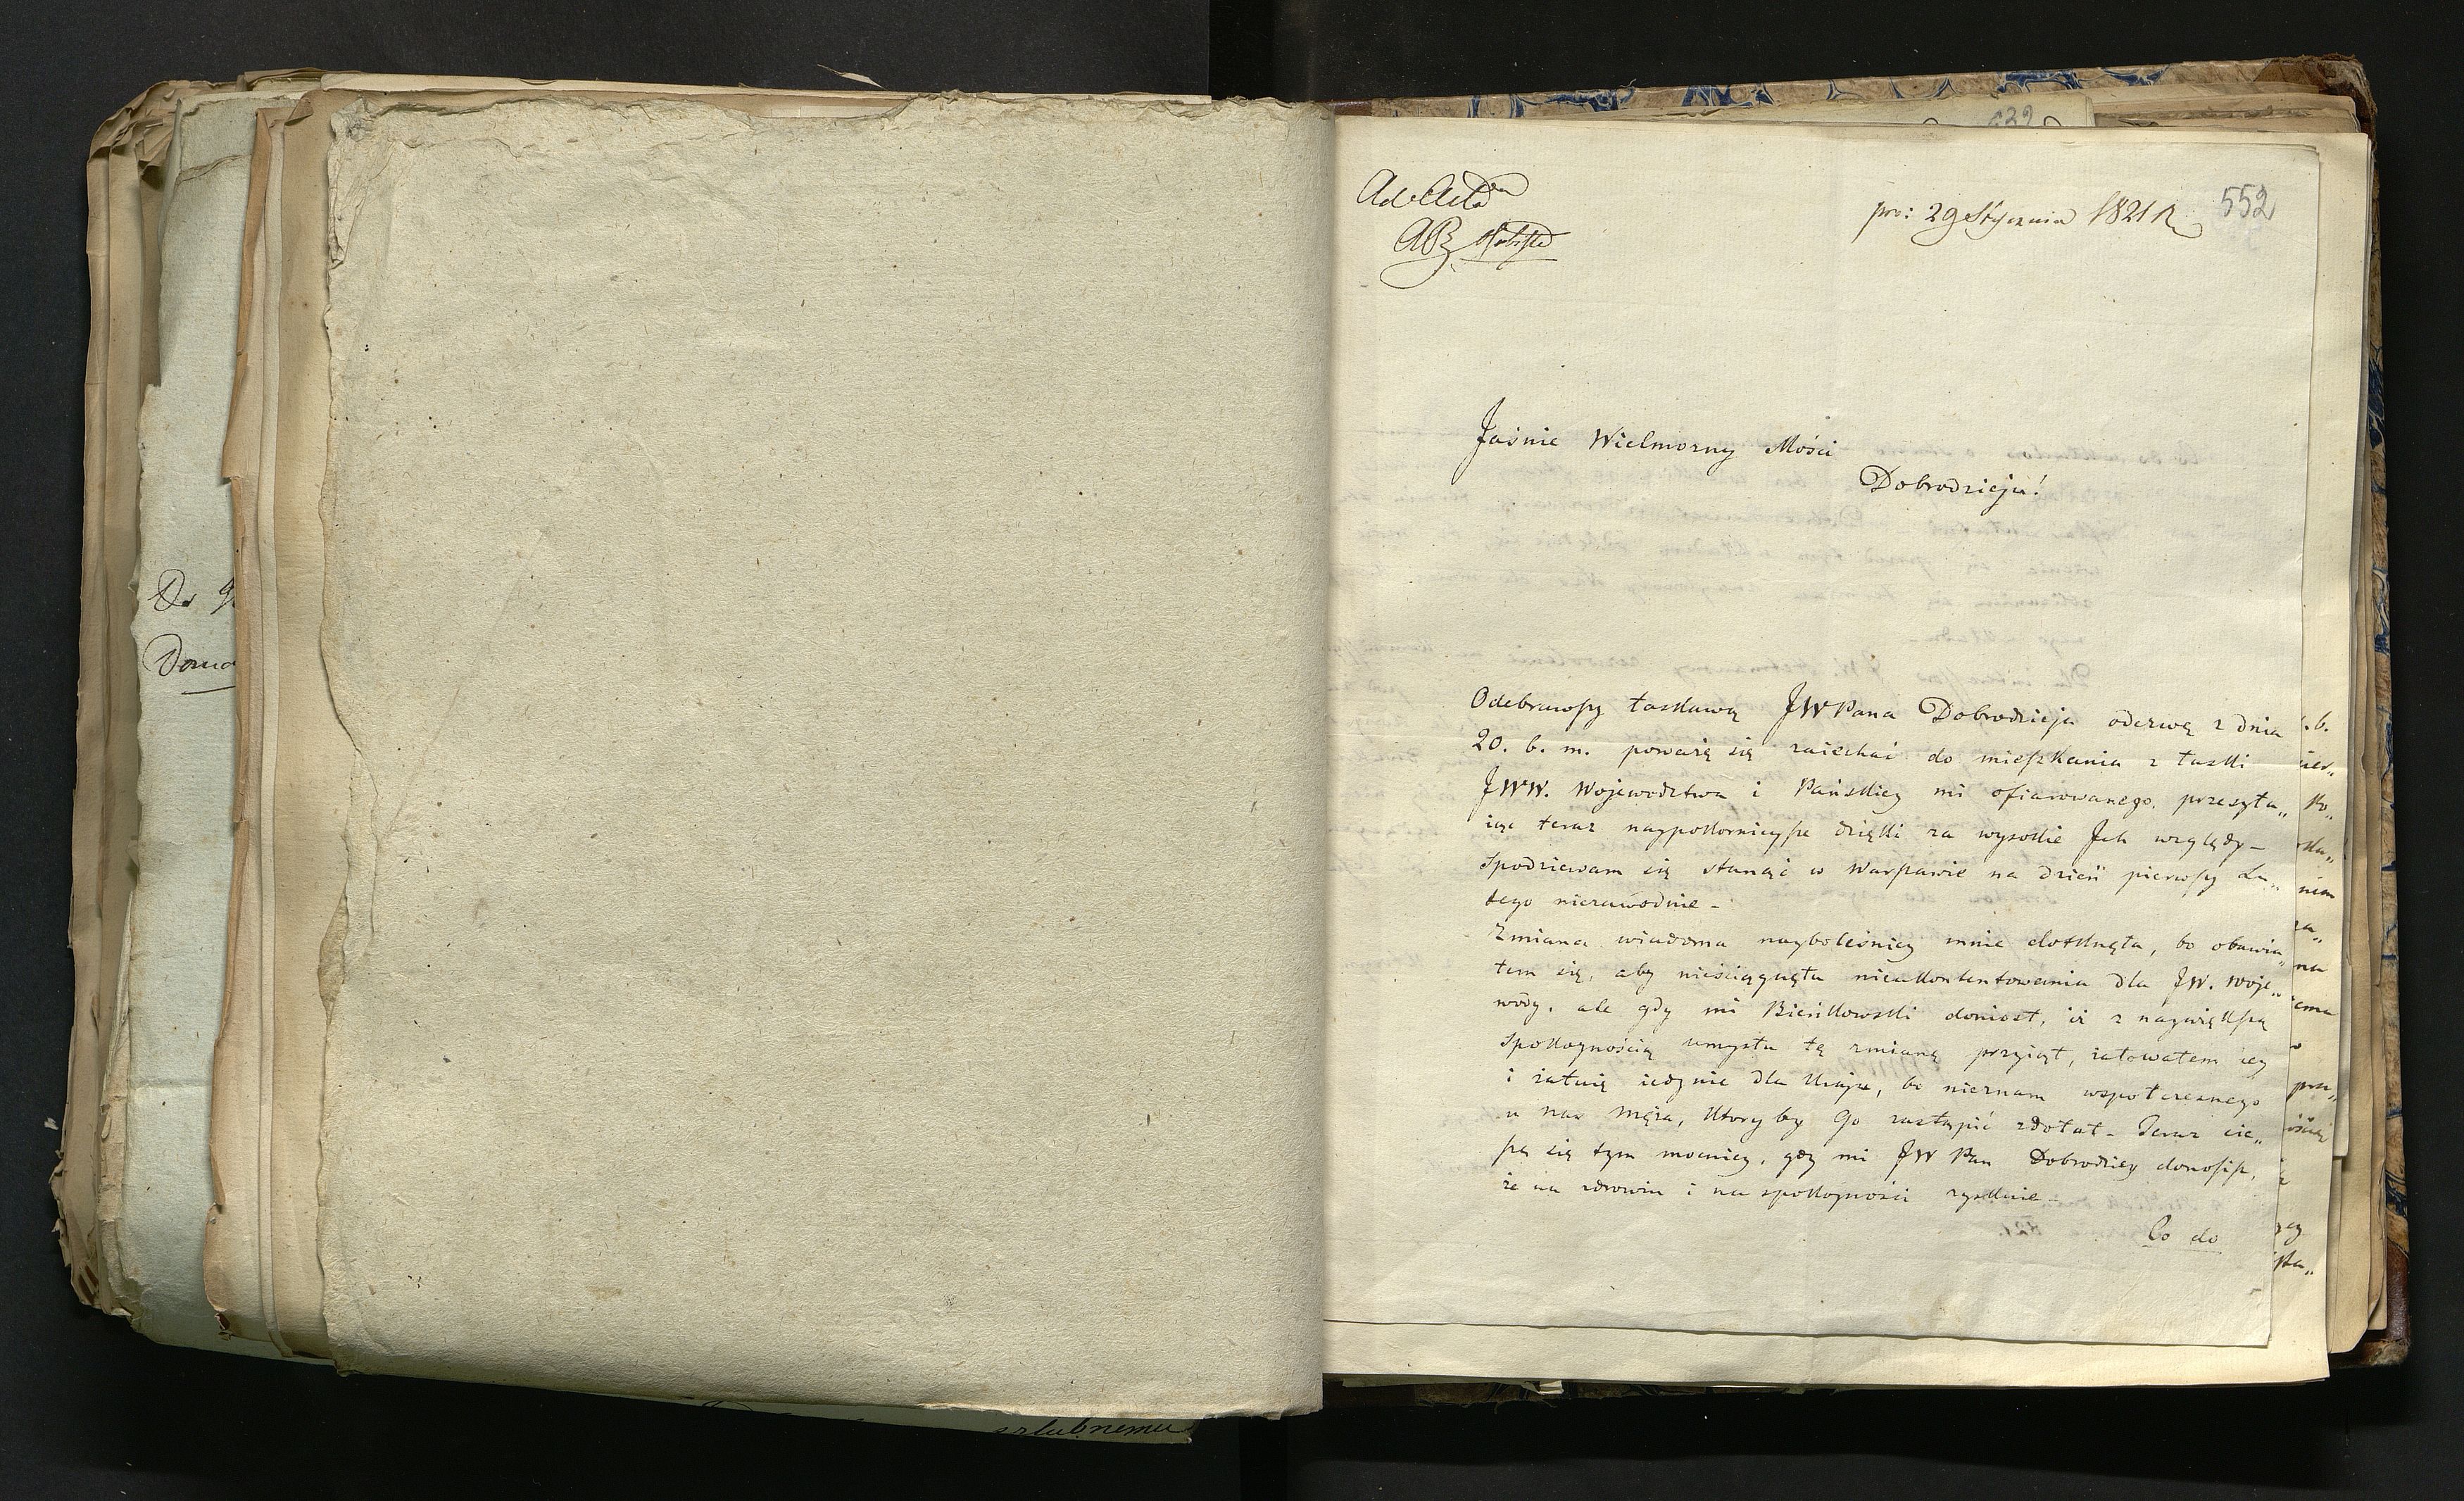 Ad Acta
pro: 29 Stycznia 1821 R
552
Jaśnie Wielmożny Mości
Dobrodzieju!
Odebrawszy łaskawą JWPana Dobrodzieja odezwę z dnia
20. b. m. poważę się zaiechać do mieszkania z łaski
JWW. Województwa i Pańskiey mi ofiarowanego, przesyła„
iąc teraz naypokornieysze dzięki za wysokie Jch względy –
Spodziewam się stanąć w Warszawie na dzień pierwszy Lu„
tego niezawodnie –
Zmiana wiadoma nayboleśniey mnie dotknęła, bo obawia„
łem się, aby nieściągnęła nieukontentowania dla JW. Woje„
wody, ale gdy mi Bieńkowski doniosł, iż z naywiększą
spokoynością umysłu tę zmianę przyiął, żałowałem iey
i żałuię iedynie dla kraju, bo nieznam wspołczesnego
u nas męża, ktoryby Go zastąpić zdołał – Teraz cie„
szę się tym mocniey, gdy mi JW Pan Dobrodziey donosisz,
że na zdrowiu i na spokoyności zyskuie –
Co do
Do
szlubnemu